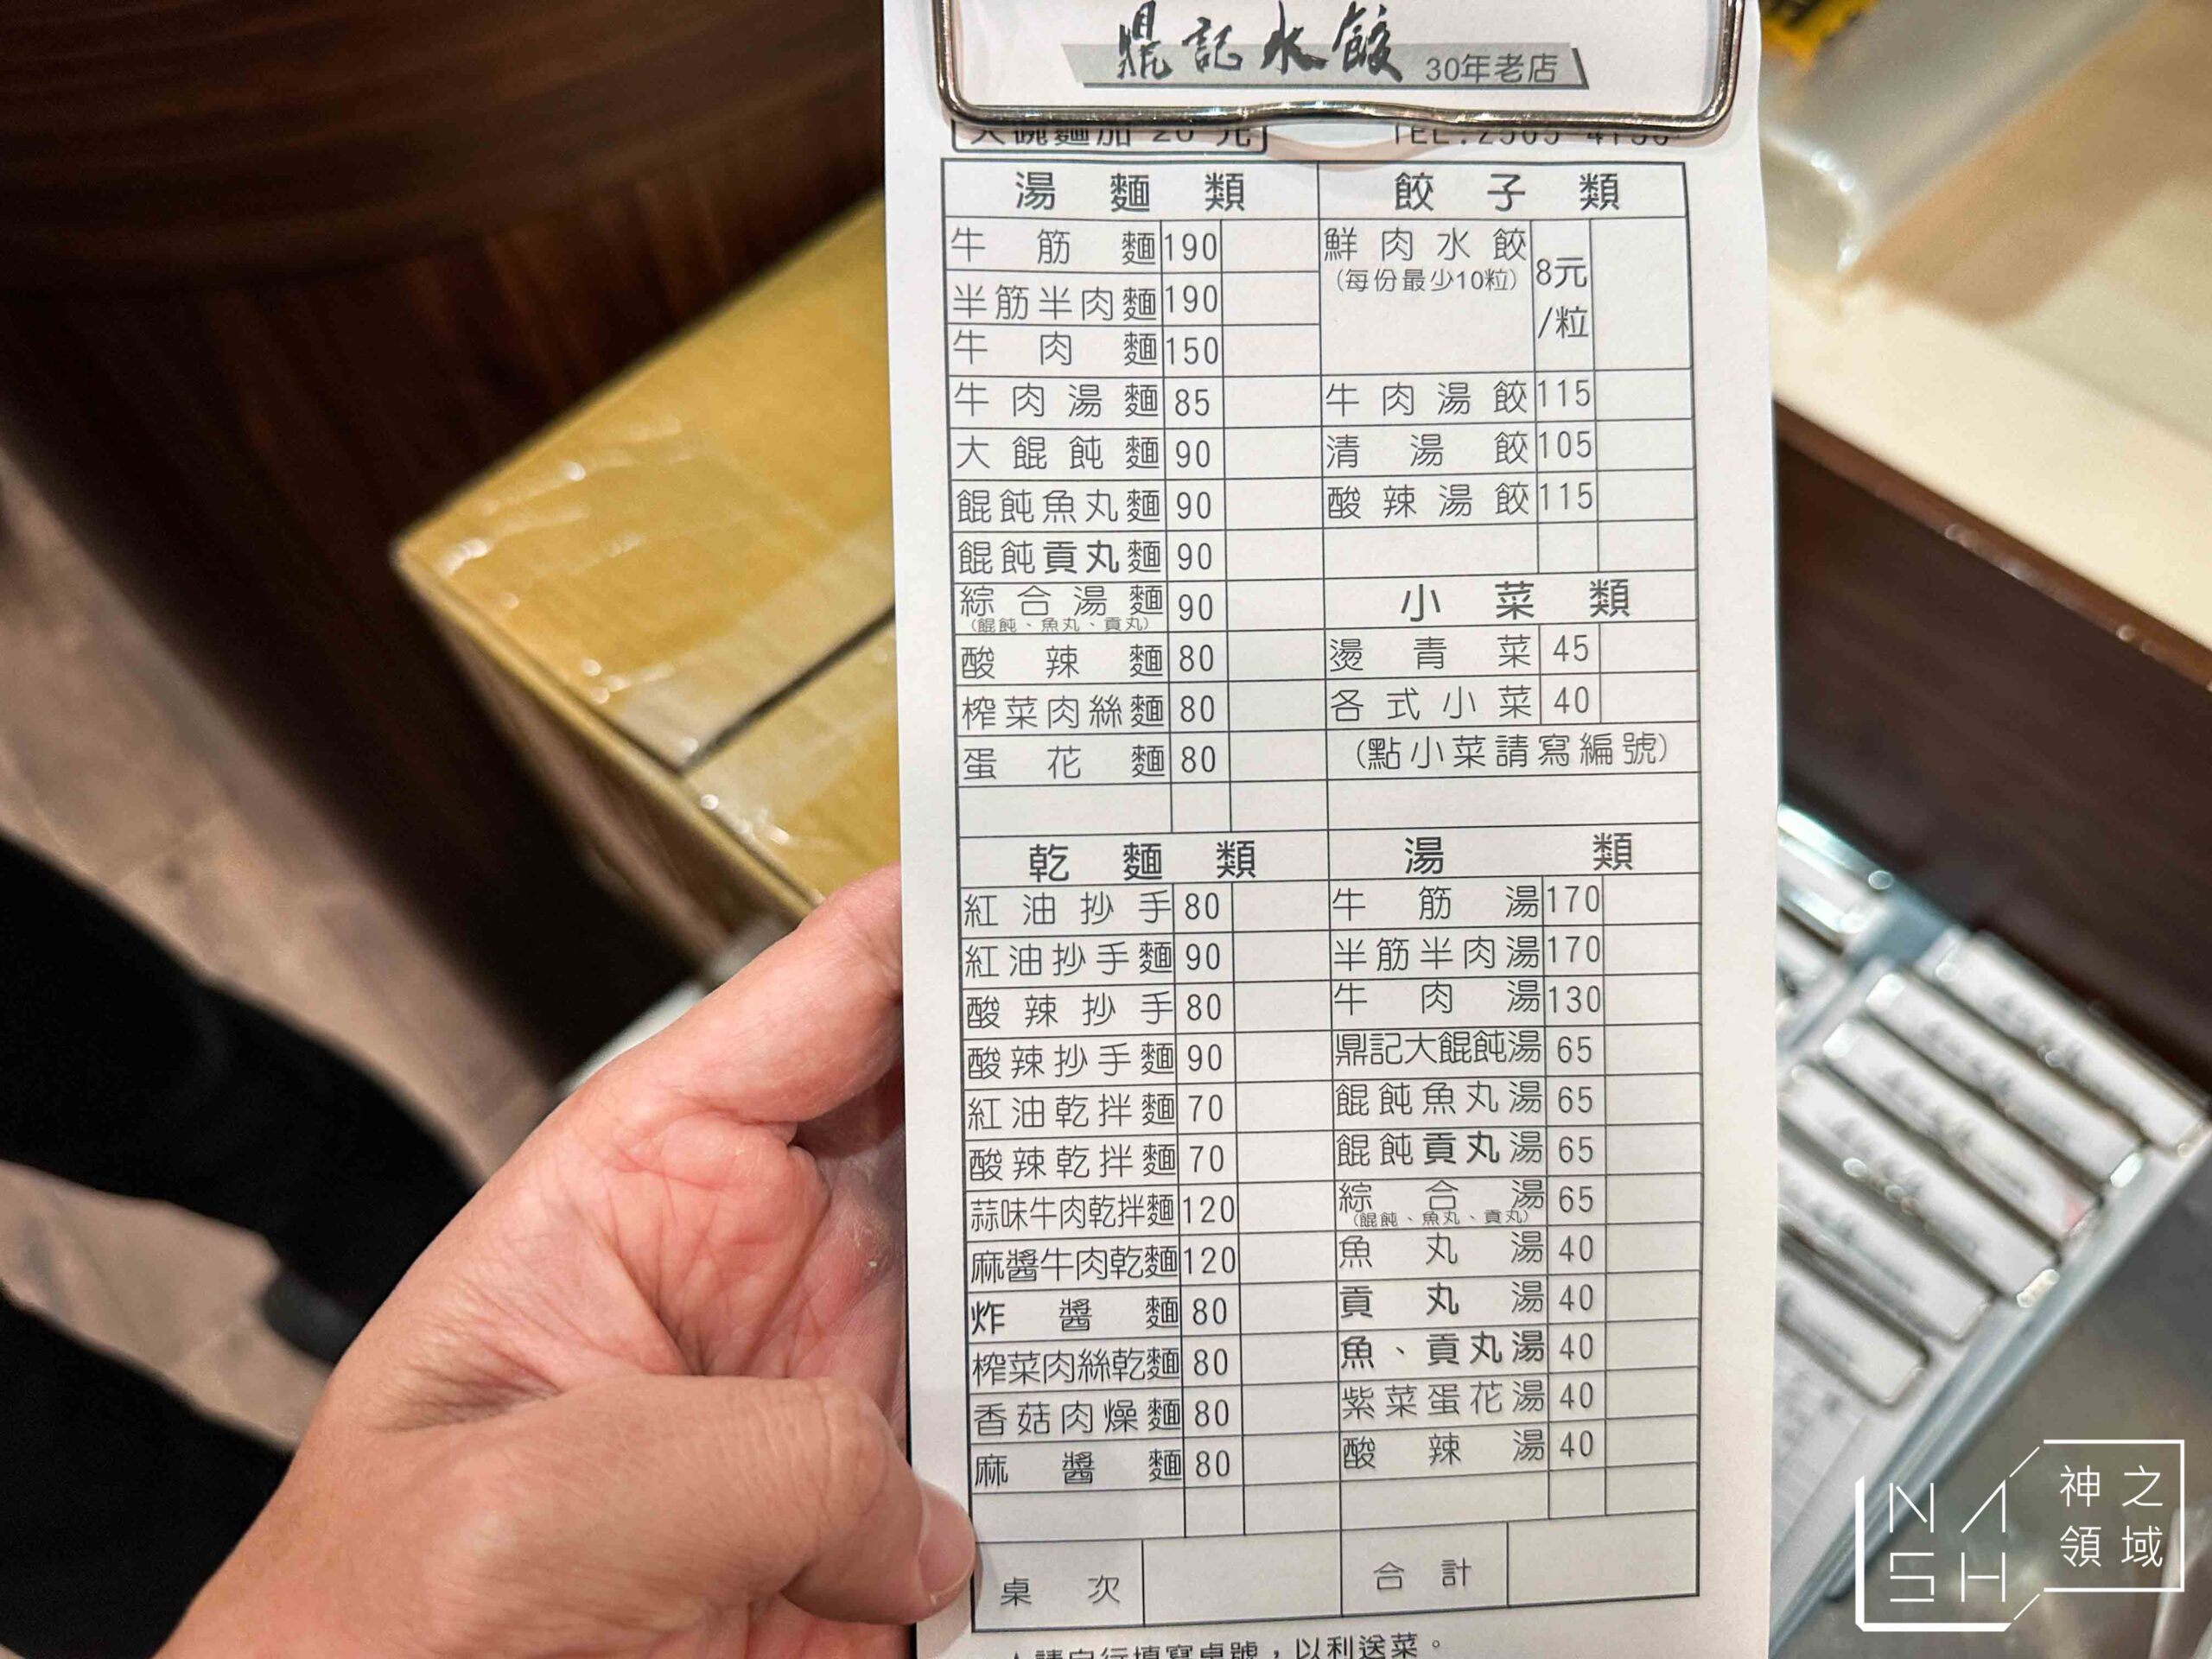 鼎記水餃 30年老店
大碗麵加 20 元
TEL:2565-4136
湯麵類
牛筋麵 190
半筋半肉麵 190
牛肉麵 150
牛肉湯麵 85
大餛飩麵 90
餛飩魚丸麵 90
餛飩貢丸麵 90
綜合湯麵 90
(餛飩、魚丸、貢丸)
酸辣麵 80
榨菜肉絲麵 80
蛋花麵 80
餃子類
鮮肉水餃 8元/粒
(每份最少10粒)
牛肉湯餃 115
清湯餃 105
酸辣湯餃 115
小菜類
燙青菜 45
各式小菜 40
(點小菜請寫編號)
乾麵類
紅油抄手 80
紅油抄手麵 90
酸辣抄手 80
酸辣抄手麵 90
紅油乾拌麵 70
酸辣乾拌麵 70
蒜味牛肉乾拌麵 120
麻醬牛肉乾麵 120
炸醬麵 80
榨菜肉絲乾麵 80
香菇肉燥麵 80
麻醬麵 80
湯類
牛筋湯 170
半筋半肉湯 170
牛肉湯 130
鼎記大餛飩湯 65
餛飩魚丸湯 65
餛飩貢丸湯 65
綜合湯 65
(餛飩、魚丸、貢丸)
魚丸湯 40
貢丸湯 40
魚、貢丸湯 40
紫菜蛋花湯 40
酸辣湯 40
桌次
合計
請自行填寫桌號，以利送菜。
NASH
神之領域